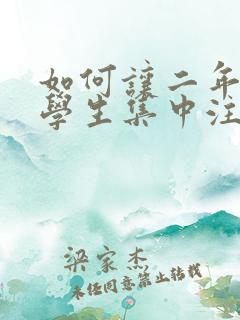 如何讓二年
學生集中注
梁家杰
未经同意禁止转载